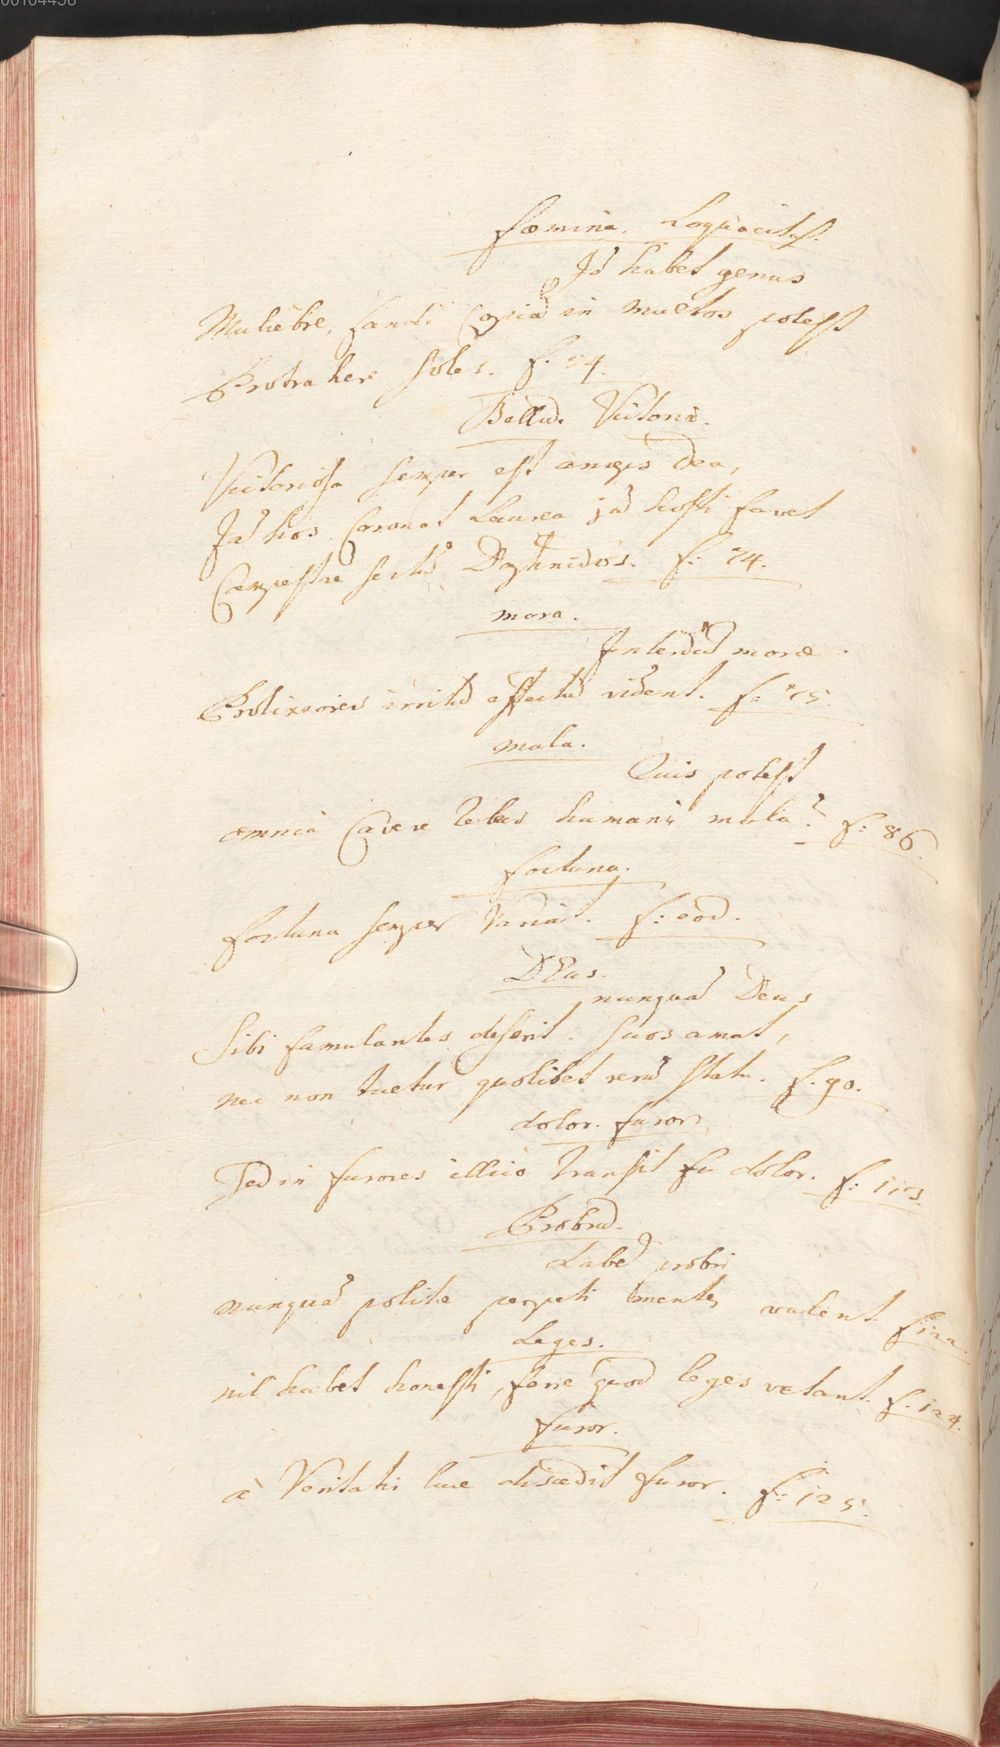 00104438
Fœmina. Loquacitas.
Id habet genus
Muliebre, fandi Copiā in multos potest
Protrahere soles. f. 54.
Bellū. Victoria.
Victoriosa semper est anceps Dea,
Jā hos Coronat Laurea jā hosti favet
Campestre sertū f: 74.
mora.
Interdū moræ
Prolixiores irritū effectū vident. f: 75.
mala.
Quis potest
omnia Cavere rebus humanis mala? f: 86.
Fortuna.
Fortuna semper variat. f: eod.
DEus.
nunquā Deus
Sibi famulantes deserit. Suos amat,
nec non tuetur quolibet rerū statu. f. 90.
dolor. furor.
Sed in furores illico transit su dolor. f: 113.
Probrū.
Labē probri
nunquā politæ perpeti mentes valent f: 122.
Leges.
nil habet honesti, ferre quod leges vetant. f. 124.
furor.
à Veritatis luce discedit furor. f: 125.